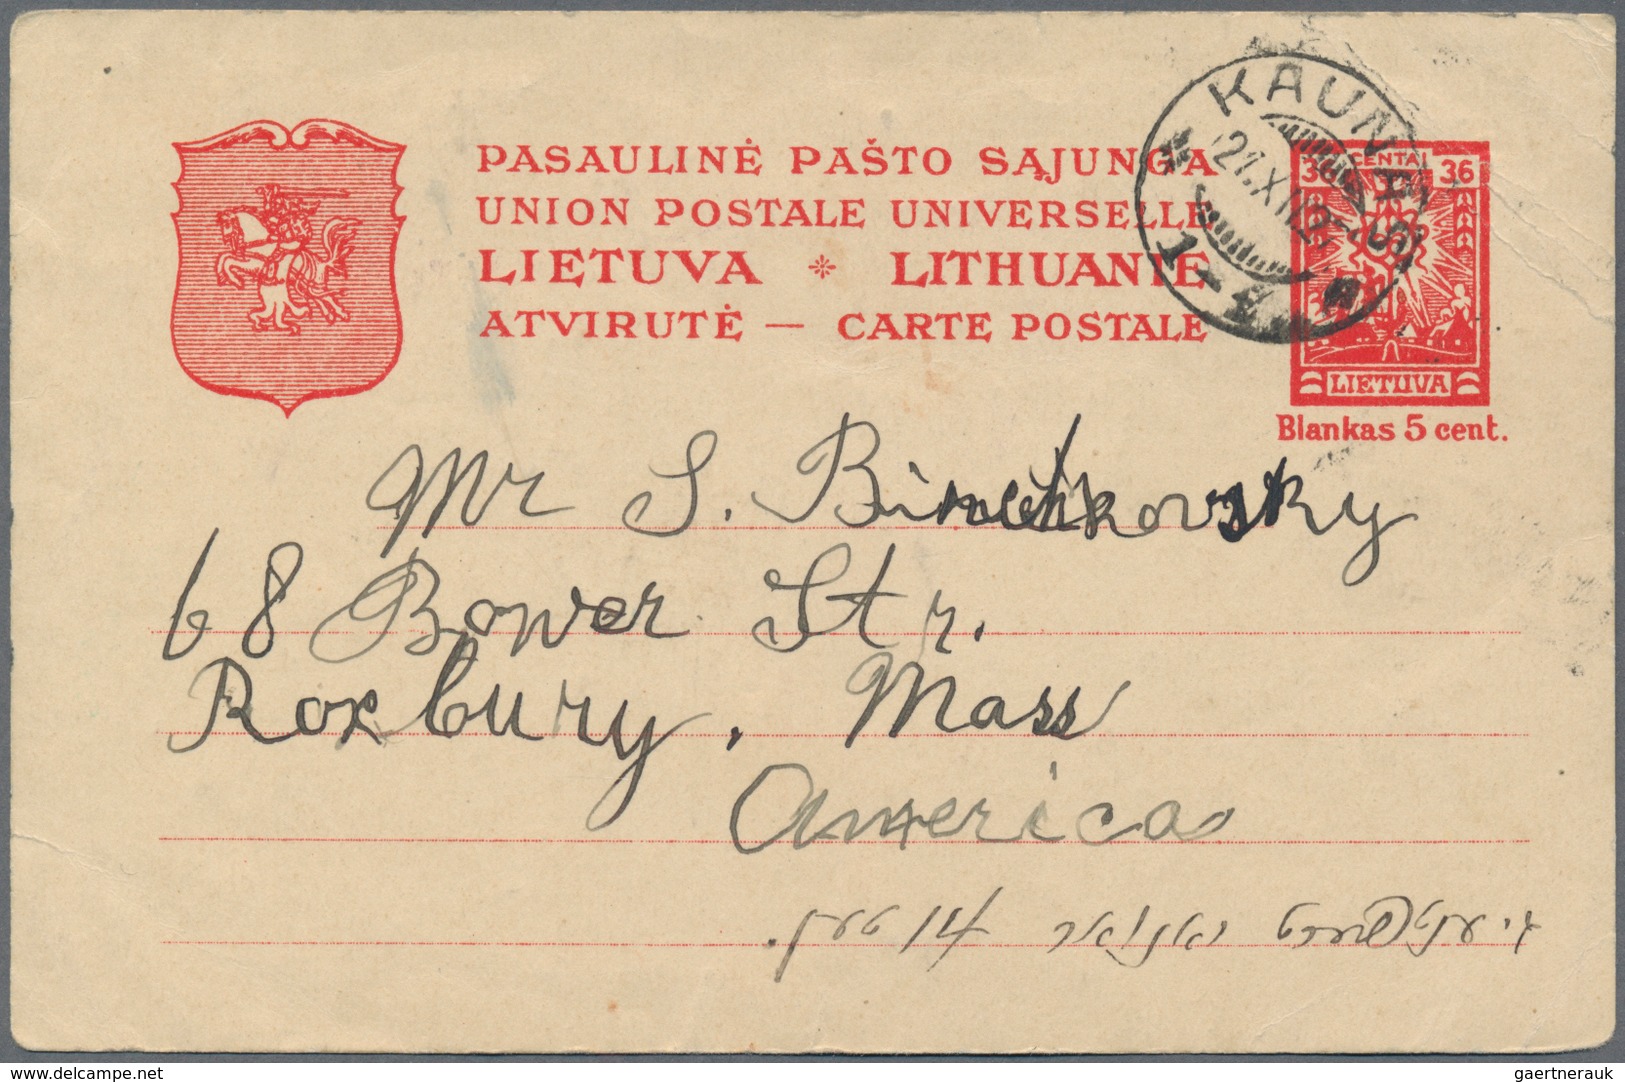 PASAULINĖ PAŠTO SĄJUNGA
UNION POSTALE UNIVERSELLE
LIETUVA * LITHUANIE
ATVIRUTĖ — CARTE POSTALE
KAUNAS
1
36 CENTAI 36
LIETUVA
Blankas 5 cent.
Mr S.
68 Bower Str.
Roxbury. Mass
America
יאנואר 14 טען.
delcampe.net
gaertnerauk